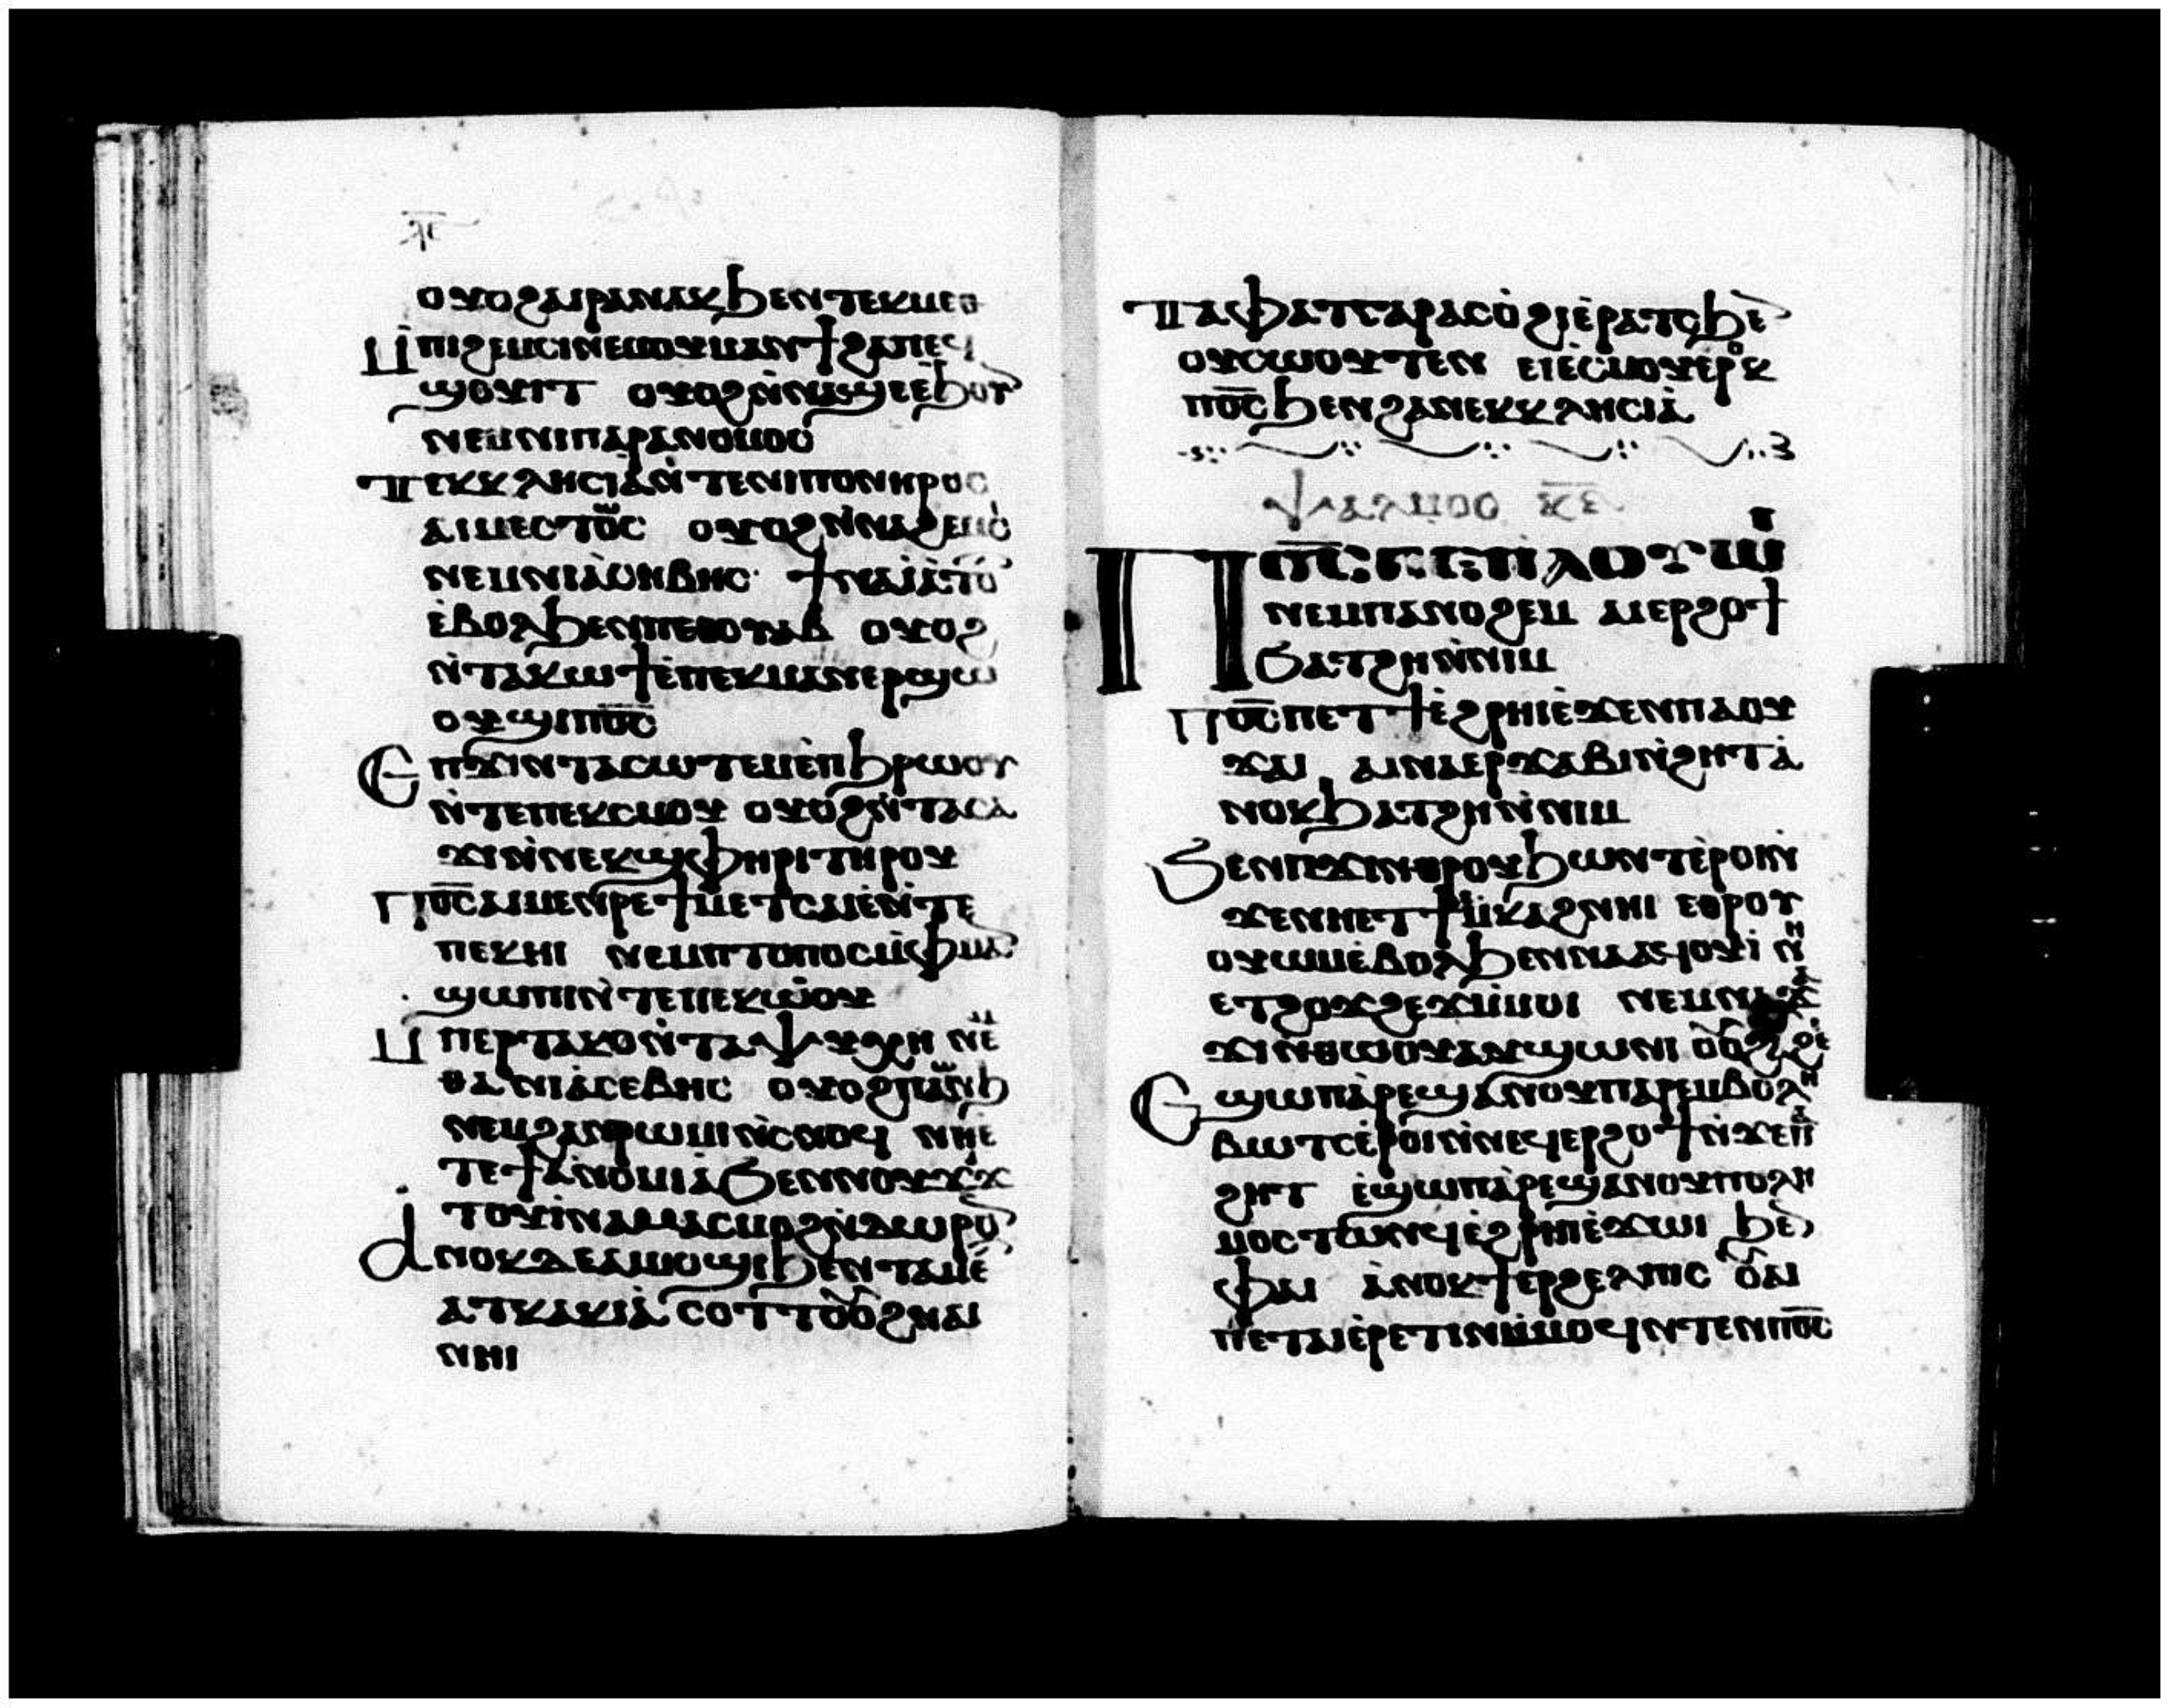 ⲗ̅ⲋ̅
ⲟⲩⲟϩⲁⲓⲣⲁⲛⲁⲕϧⲉⲛⲧⲉⲕⲙⲉⲑ
ⲙ̀ⲡⲓϩⲉⲙⲥⲓⲛⲉⲙⲟⲩⲙⲁⲛϯϩⲁⲡⲉϥ
ϣⲟⲩⲓⲧ ⲟⲩⲟϩⲛ̀ⲛⲁϣⲉⲉ̀ϧⲟⲩ
ⲛⲉⲙⲛⲓⲡⲁⲣⲁⲛⲟⲙⲟⲥ
ϯⲉⲕⲕⲗⲏⲥⲓⲁ̀ⲛ̀ⲧⲉⲛⲓⲡⲟⲛⲏⲣⲟⲥ
ⲁⲓⲙⲉⲥⲧⲱⲥ ⲟⲩⲟϩⲛ̀ⲛⲁϩⲉⲙⲥ
ⲛⲉⲙⲛⲓⲁ̀ⲥⲉⲃⲏⲥ ϯⲛⲁⲓⲁ̀ⲧⲟ
ⲉ̀ⲃⲟⲗϧⲉⲛⲡⲉⲑⲟⲩⲁⲃ ⲟⲩⲟϩ
ⲛ̀ⲧⲁⲕⲱϯⲉ̀ⲡⲉⲕⲙⲁⲛⲉⲣϣⲱ
ⲟⲩϣⲓⲡⲟ̅ⲥ̅
Ⲉⲡϫⲓⲛⲧⲁⲥⲱⲧⲉⲙⲉ̀ⲡϧⲣⲱⲟⲩ
ⲛ̀ⲧⲉⲡⲉⲕⲥⲙⲟⲩ ⲟⲩⲟϩⲛ̀ⲧⲁⲥⲁ
ϫⲓⲛ̀ⲛⲉⲕϣⲫⲏⲣⲓⲧⲏⲣⲟⲩ
Ⲡⲟ̅ⲥ̅ⲁⲓⲙⲉⲛⲣⲉϯⲙⲉⲧⲥⲁⲓⲉ̀ⲛ̀ⲧⲉ
ⲡⲉⲕⲏⲓ ⲛⲉⲙⲡⲧⲟⲡⲟⲥⲙ̀ⲫⲙⲁ
ϣⲱⲡⲓⲛ̀ⲧⲉⲡⲉⲕⲱ̀ⲟⲩ
Ⲙ̀ⲡⲉⲣⲧⲁⲕⲟⲛ̀ⲧⲁⲯⲩⲭⲏ ⲛⲉⲙ
ϩⲁⲛⲓⲁ̀ⲥⲉⲃⲏⲥ ⲟⲩⲟϩⲡⲁⲱⲛϧ
ⲛⲉⲙϩⲁⲛⲣⲱⲙⲓⲛ̀ⲥⲛⲟϥ ⲛⲏⲉ̀
ⲧⲉϯⲁ̀ⲛⲟⲙⲓⲁ̀ϧⲉⲛⲛⲟⲩϫⲓϫ
ⲧⲟⲩⲓ̀ⲛⲁⲙⲁⲥⲙⲟϩⲛ̀ⲇⲱⲣⲟ
Ⲁⲛⲟⲕⲇⲉⲁⲓⲙⲟϣⲓϧⲉⲛⲧⲁⲙⲉ
ⲁⲧⲕⲁⲕⲓⲁ̀ ⲥⲟⲧⲧⲟ̅ⲟ̅ϩⲛⲁⲓ
ⲛⲏⲓ
Ⲧⲁⲫⲁⲧⲅⲁⲣⲁⲥⲟ̀ϩⲓⲉ̀ⲣⲁⲧⲥϧⲉ
ⲟⲩⲥⲱⲟⲩⲧⲉⲛ ⲉⲓⲉ̀ⲥⲙⲟⲩⲉⲣⲟⲕ
ⲡⲟ̅ⲥ̅ϧⲉⲛϩⲁⲛⲉⲕⲕⲗⲏⲥⲓⲁ̀
ⲯⲁⲗⲙⲟⲥ ⲕ̅ⲋ̅
Ⲡⲟ̅ⲥ̅ⲡⲉⲡⲁⲟⲩⲱⲓⲛⲓ
ⲛⲉⲙⲡⲁⲛⲟϩⲉⲙ ⲁⲓⲉⲣϩⲟϯ
ϧⲁⲧϩⲏⲛ̀ⲛⲓⲙ
Ⲡⲟ̅ⲥ̅ⲡⲉⲧϯⲉ̀ϩⲣⲏⲓⲉ̀ϫⲉⲛⲡⲁⲟⲩ
ϫⲁⲓ ⲁⲓⲛⲁⲉⲣϫⲁⲃⲓⲛ̀ϩⲏⲧⲁ̀
ⲛⲟⲕϧⲁⲧϩⲏⲛ̀ⲛⲓⲙ
Ϧⲉⲛⲡϫⲓⲛⲑⲣⲟⲩϧⲱⲛⲧⲉ̀ⲣⲟⲓⲛ̀
ϫⲉⲛⲏⲉⲧϯⲙ̀ⲕⲁϩⲛⲏⲓ ⲉⲑⲣⲟⲩ
ⲟⲩⲱⲙⲉ̀ⲃⲟⲗϧⲉⲛⲛⲁⲁϥⲟⲩⲓ̀ ⲛⲏ
ⲉⲧϩⲟϫϩⲉϫⲙ̀ⲙⲟⲓ ⲛⲉⲙⲛⲁϫⲁ
ϫⲓⲛⲑⲱⲟⲩⲁⲩϣⲱⲛⲓ ⲟⲟϩⲁϩⲉ
Ⲉϣⲱⲡⲁ̀ⲣⲉϣⲁⲛⲟⲩⲡⲁⲣⲉⲙⲃⲟⲗⲏ
ⲃⲱⲧⲥⲉ̀ⲣⲟⲓⲛ̀ⲛⲉϥⲉⲣϩⲟϯⲛ̀ϫⲉⲡⲁ
ϩⲏⲧ ⲉ̀ϣⲱⲡⲁ̀ⲣⲉϣⲁⲛⲟⲩⲡⲟⲗⲏ
ⲙⲟⲥⲧⲱⲛϥⲉ̀ϩⲣⲏⲓⲉ̀ϫⲱⲓ ϧⲉ
ⲫⲁⲓ ⲁ̀ⲛⲟⲕϯⲉⲣϩⲉⲗⲡⲓⲥ ⲟⲩⲁⲓ
ⲡⲉⲧⲁⲓⲉ̀ⲣⲉⲧⲓⲛⲙ̀ⲙⲟϥⲛⲧⲉⲛⲡⲟ̅ⲥ̅